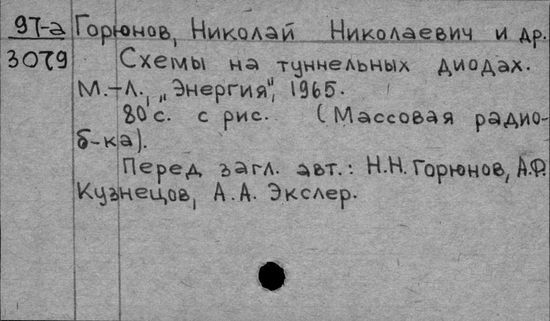 97-а Горюнов, Николай Николаевич и др.
3079 Схемы на туннельных диодах.
М.-Л., „Энергия", 1965.
80 с. с рис. (Массовая радио-
б-ка).
Перед загл. авт.: Н.Н. Горюнов, А.Ф.
Кузнецов, А.А. Экслер.